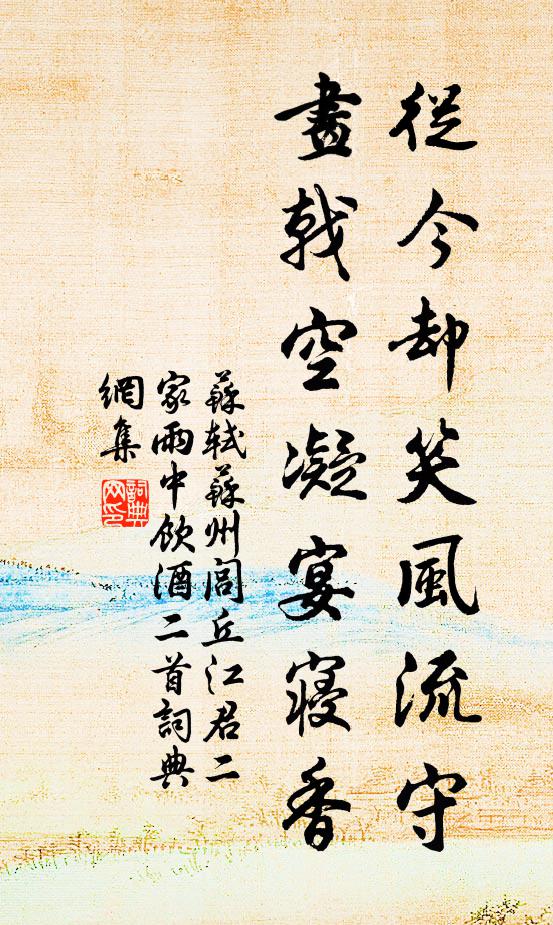 從今却笑風流守
畫戟空凝宴寢香
蘇軾蘇州閭丘江君二
家雨中飲酒二首詞典
網集
詞典
网印